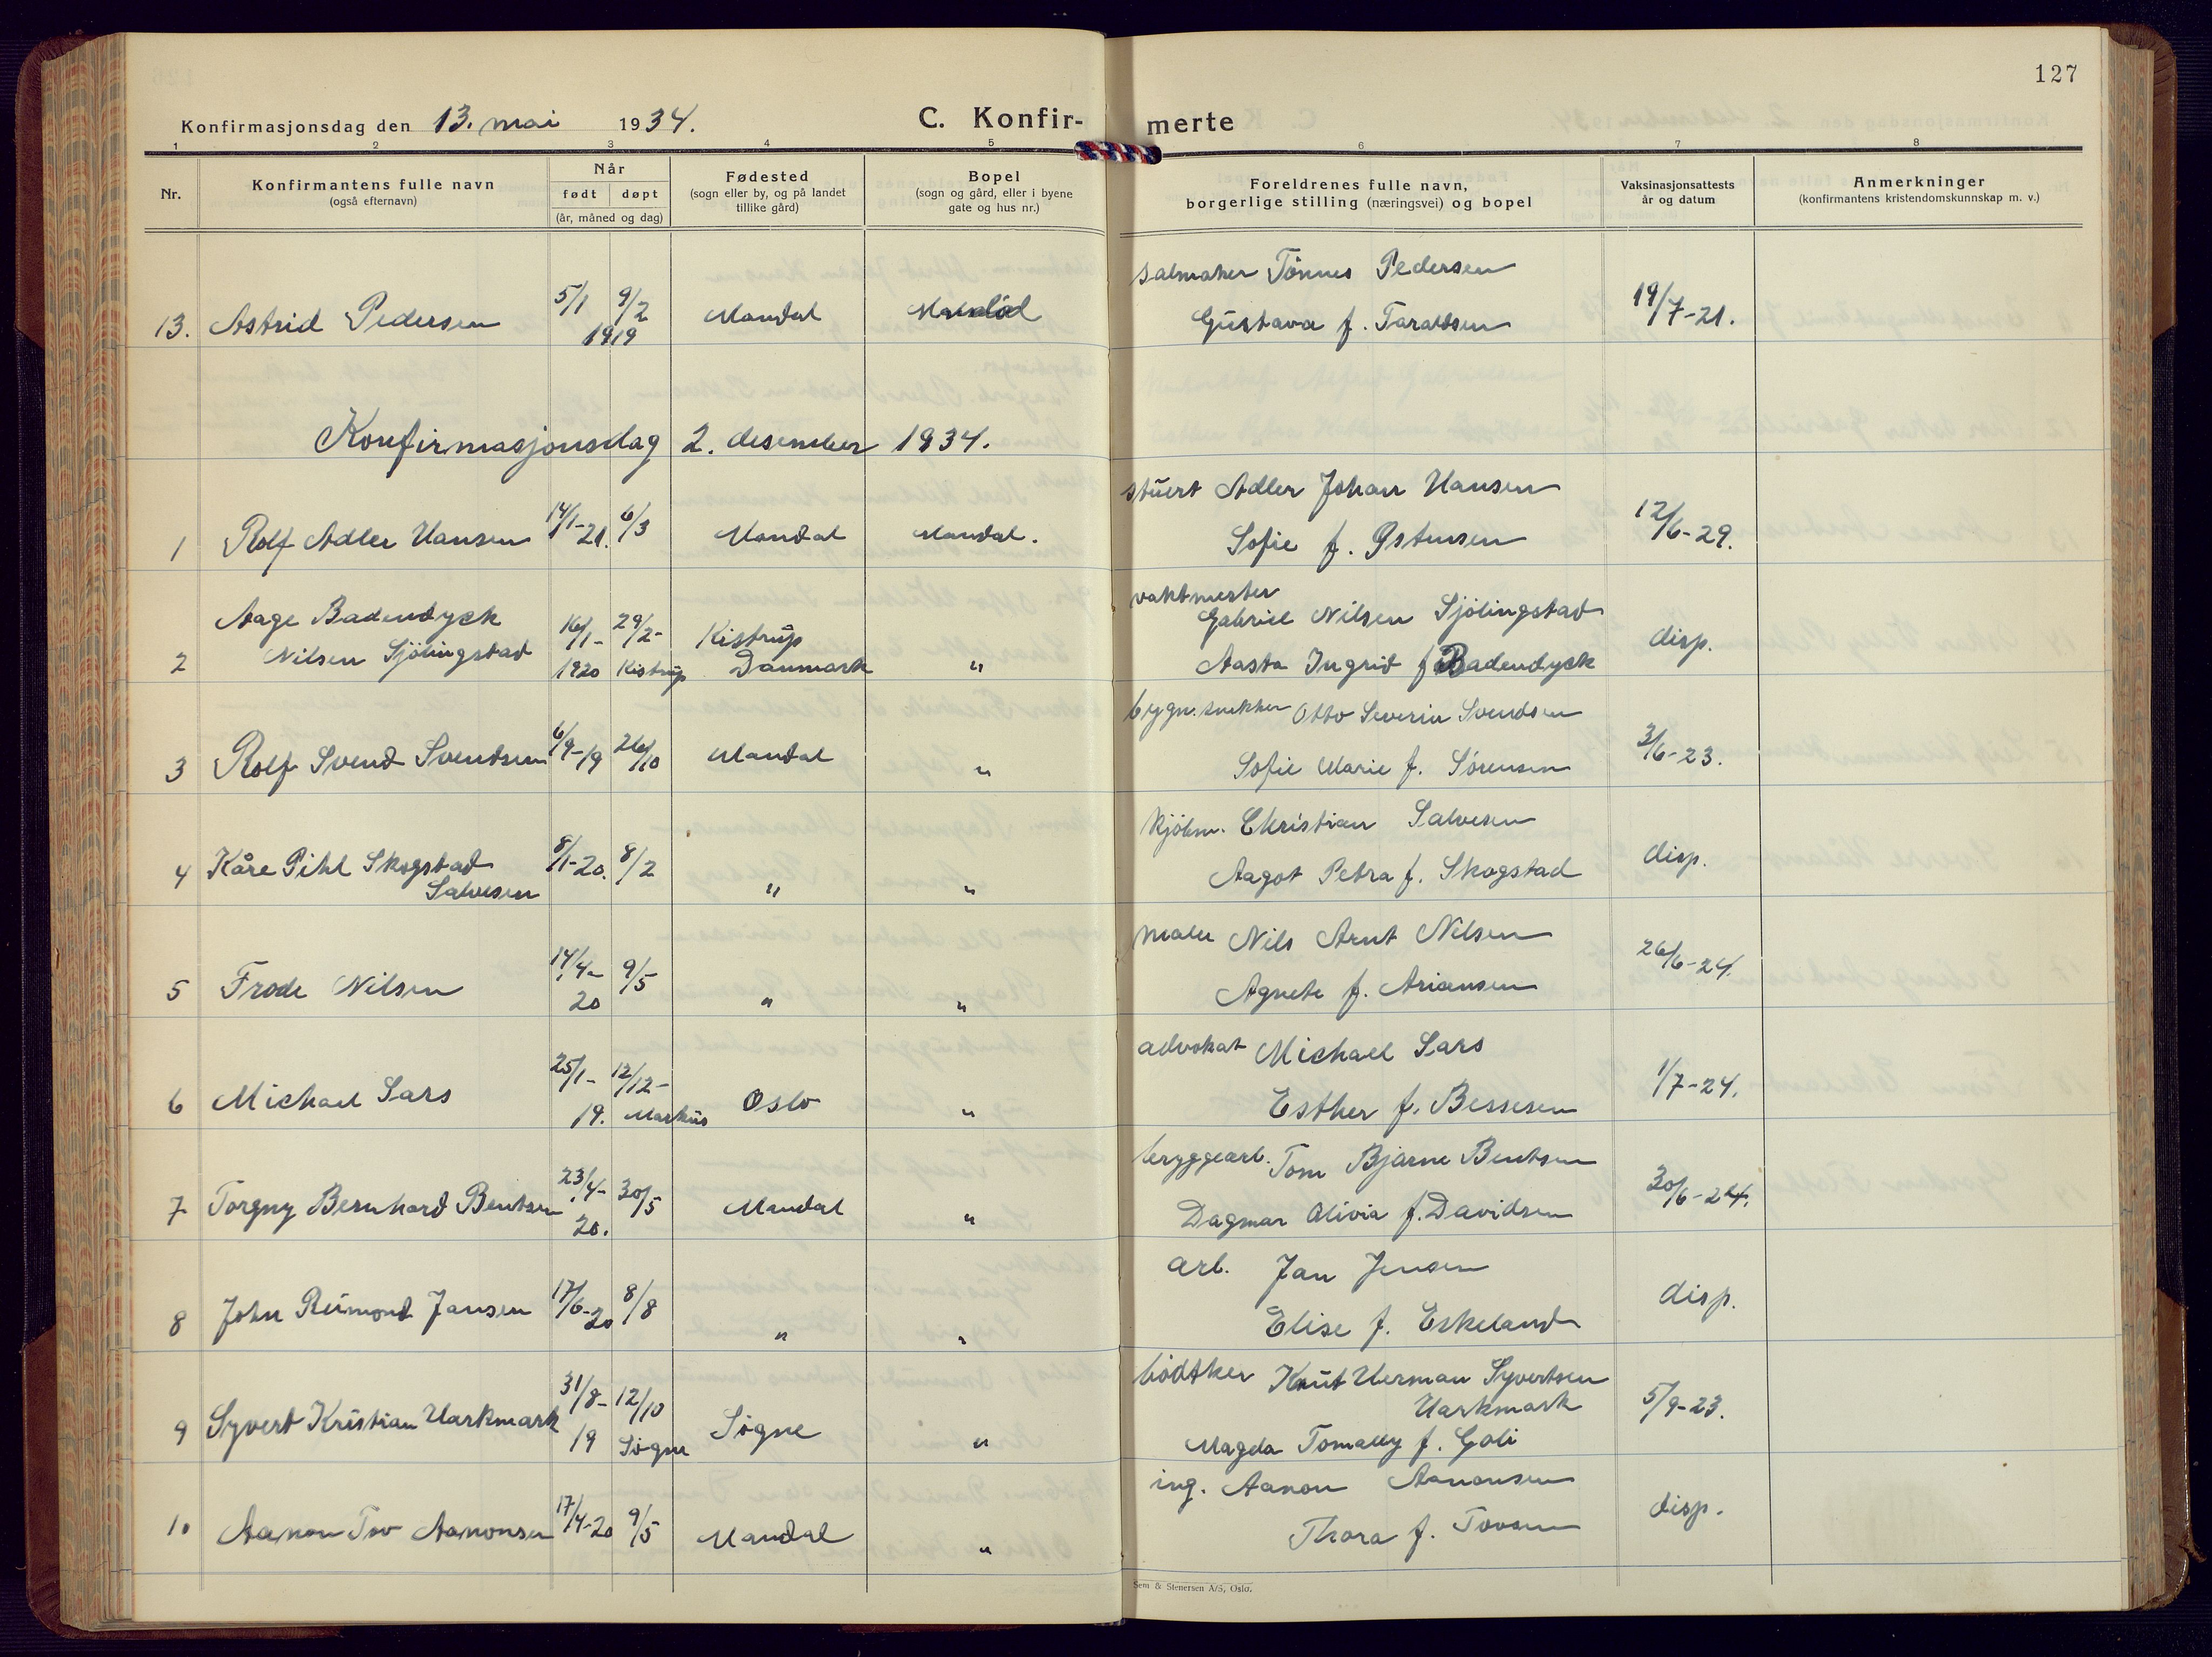 127
Konfirmasjonsdag den 13. mai 1934. C. Konfir- merte
1 2 3 4 5 6 7 8
Nr. Konfirmantens fulle navn (også efternavn) Når født døpt (år, måned og dag) Fødested (sogn eller by, og på landet tillike gård) Bopel (sogn og gård, eller i byene gate og hus nr.) Foreldrenes fulle navn, borgerlige stilling (næringsvei) og bopel Vaksinasjonsattests år og datum Anmerkninger (konfirmantens kristendomskunnskap m. v.)
salmaker Tönnes Pedersen
13. Astrid Pedersen 5/1 9/2 1919 Mandal Mandal Gustava f. Taraldsen 19/7-21.
Konfirmasjonsdag 2. desember 1934.
stuert Adler Johan Hansen
1 Rolf Adler Hansen 14/1-21. 6/3 Mandal Mandal. Sofie f. Østensen 12/6-29.
vaktmester
Aage Badendyck 16/1- 29/2- Kistrup Gabriel Nilsen Sjölingstad
2 Nilsen Sjölingstad 1920 Kistrup Danmark " Aasta Ingrid f. Badendyck disp.
bygn.snekker Otto Severin Svendsen
3 Rolf Svend Svendsen 6/9-19 26/10 Mandal " Sofie Marie f. Sörensen 3/6-23.
kjöbm. Christian Salvesen
4 Kåre Pihl Skogstad 8/1-20. 8/2 " " Aagot Petra f. Skogstad disp.
Salvesen
maler Nils Arnt Nilsen
5 Frode Nilsen 14/4-20 9/5 " " Agnete f. Ariansen 26/6-24.
advokat Michael Sars
6 Michael Sars 25/1-19. 12/12- Markus Oslo " Esther f. Bessesen 1/7-24.
bryggearb. Tom Bjarne Bentsen
7 Torgny Bernhard Bentsen 23/4-20. 30/5 Mandal " Dagmar Olivia f. Davidsen 30/6-24.
arb. Jan Jensen
8 John Reimond Jansen 17/6-20 8/8 " " Elise f. Eskeland disp.
bödtker Knut Herman Syvertsen
Harkmark
9 Syvert Kristian Harkmark 31/8-19 12/10 Sögne Sögne " Magda Tomally f. Goli 5/9-23.
ing. Aanon Aanonsen
10 Aanon Tov Aanonsen 17/4-20 9/5 Mandal " Thora f. Tovsen disp.
Sem & Stenersen A/S, Oslo.